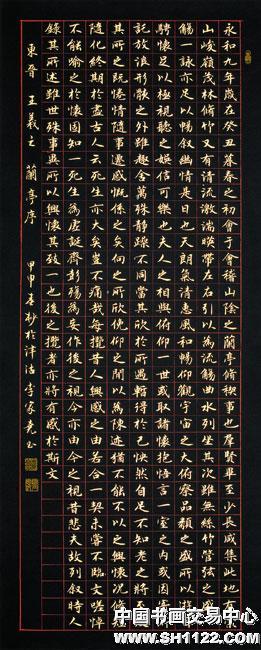 永和九年歲在癸丑暮春之初會于會稽山陰之蘭亭脩稧事也羣賢畢至少長咸集此地有崇
山峻嶺茂林脩竹又有清流激湍暎帶左右引以為流觴曲水列坐其次雖無絲竹管弦之盛一
觴一詠亦足以暢叙幽情是日也天朗氣清惠風和暢仰觀宇宙之大俯察品類之盛所以遊目
騁懷足以極視聽之娛信可樂也夫人之相與俯仰一世或取諸懷抱悟言一室之內或因寄所
託放浪形骸之外雖趣舍萬殊靜躁不同當其欣於所遇暫得於己怏然自足不知老之將至及
其所之既惓情隨事遷感慨係之矣向之所欣俛仰之閒以為陳迹猶不能不以之興懷況脩短
隨化終期於盡古人云死生亦大矣豈不痛哉每攬昔人興感之由若合一契未嘗不臨文嗟悼
不能喻之於懷固知一死生為虛誕齊彭殤為妄作後之視今亦由今之視昔悲夫故列叙時人
錄其所述雖世殊事異所以興懷其致一也後之攬者亦將有感於斯文
東晉 王羲之 蘭亭序 甲申春杪於津沽李家
中国书画交易中心
www.SH1122.com